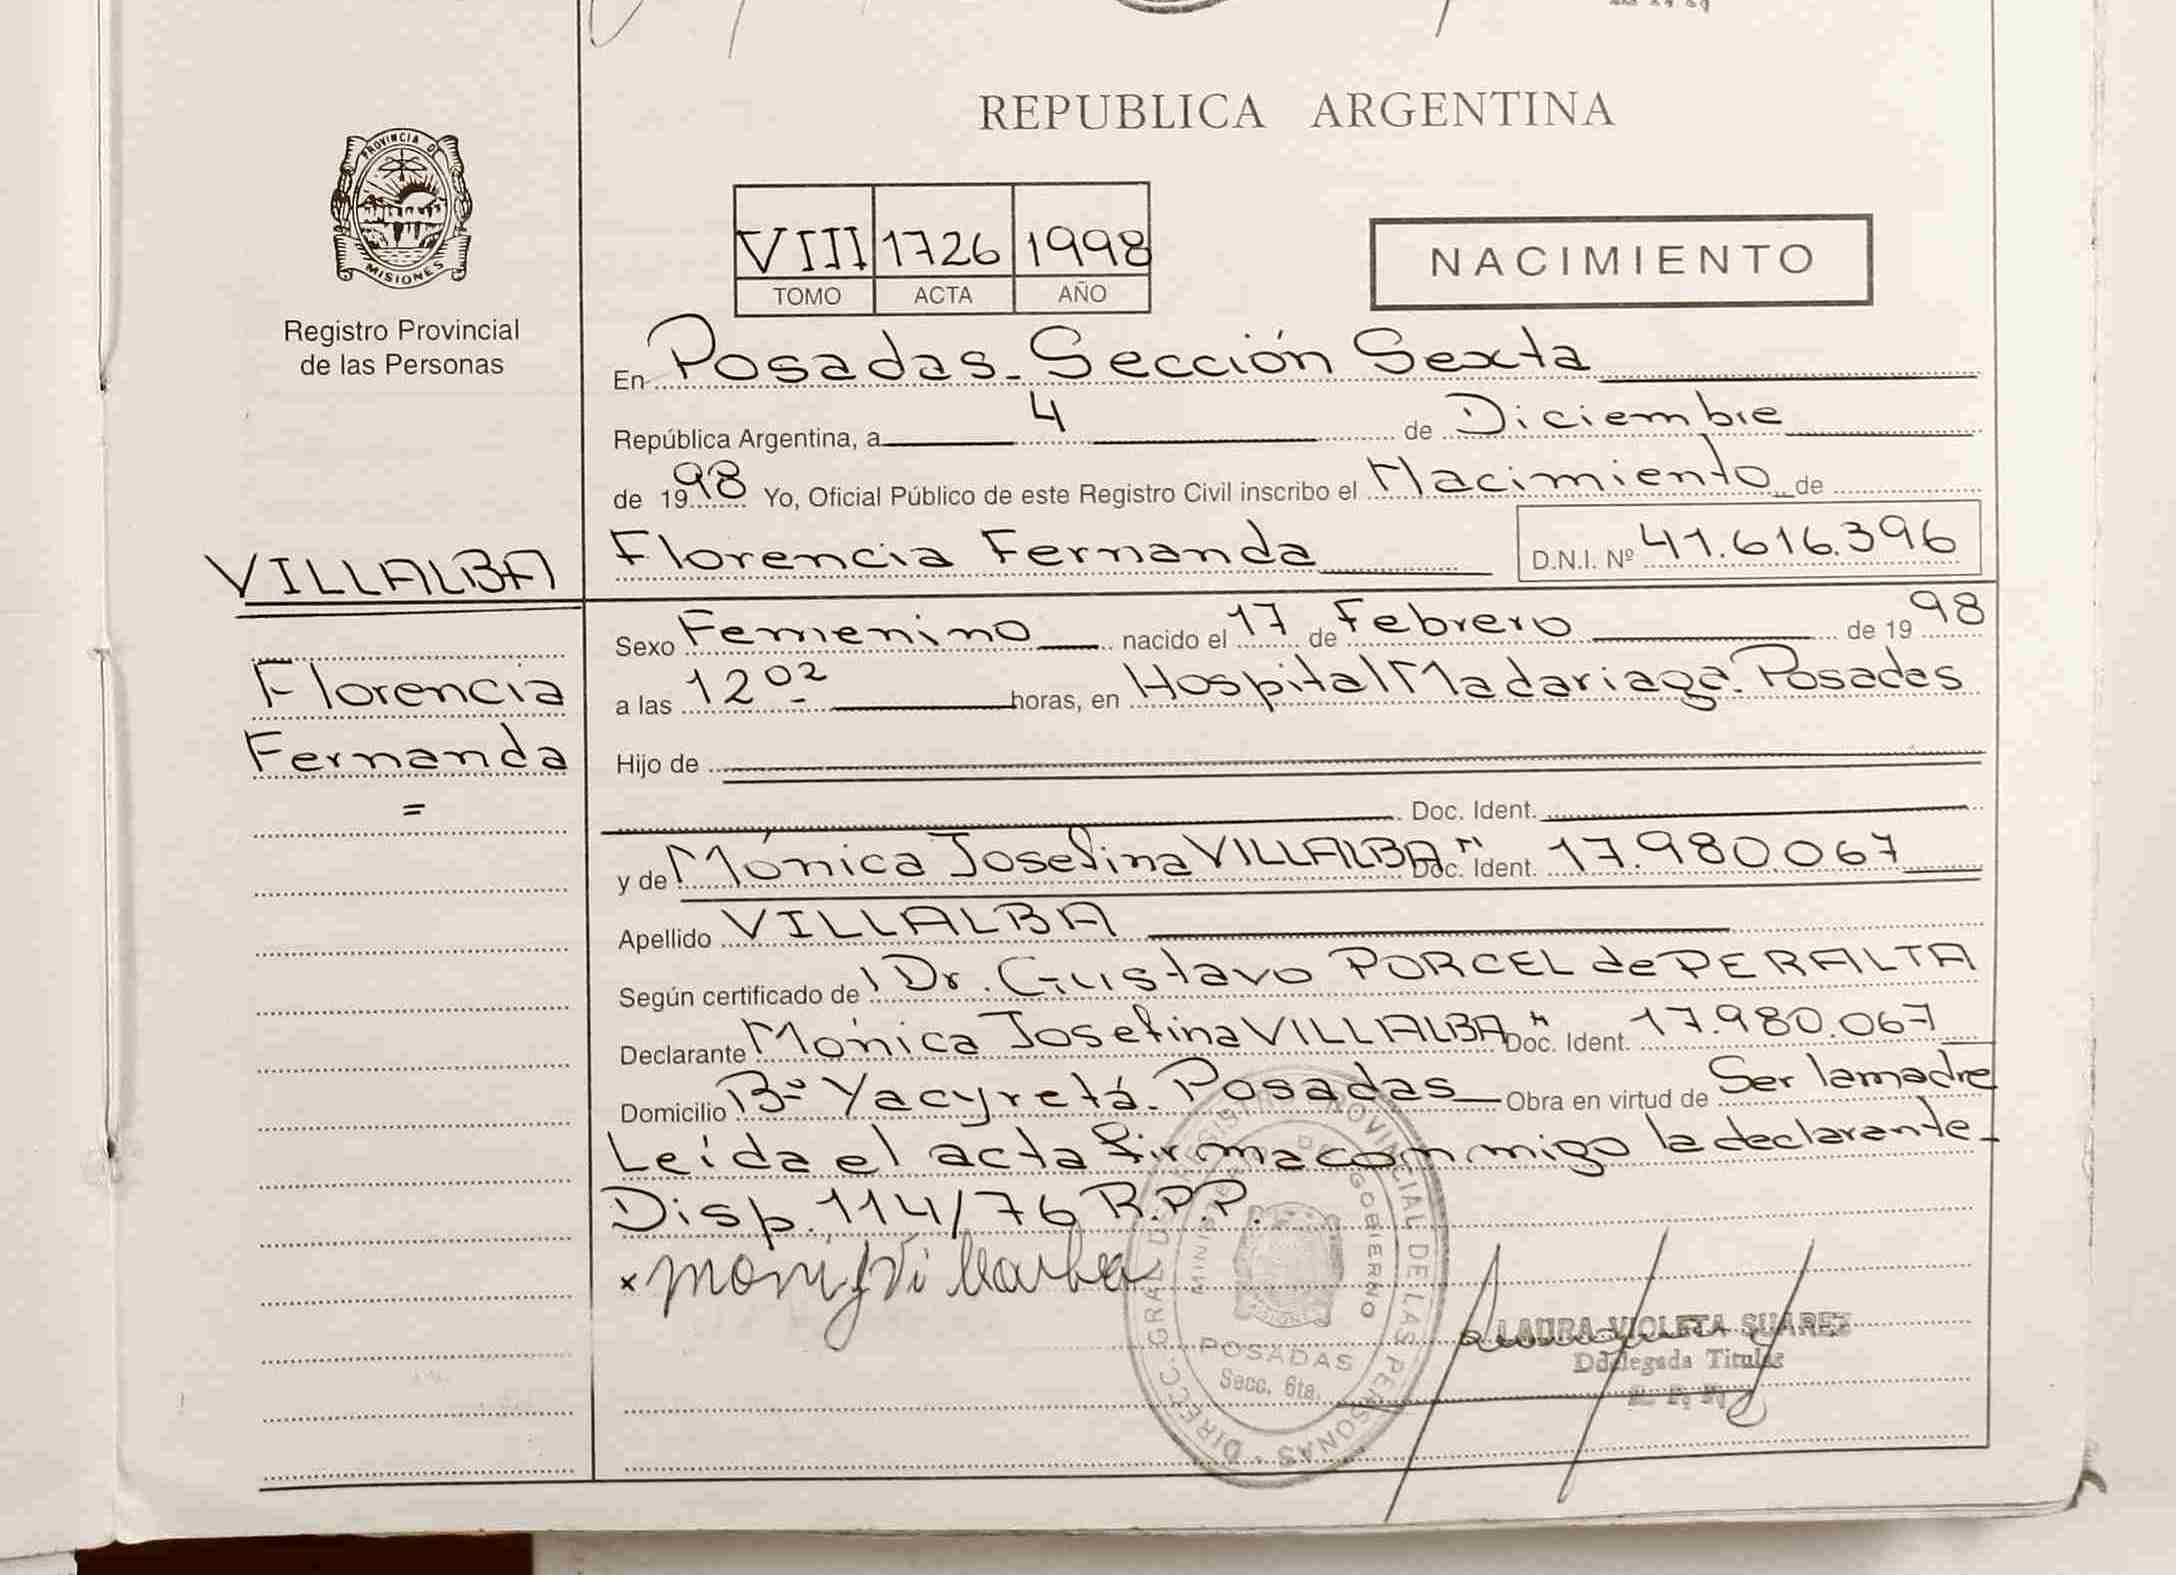 REPUBLICA ARGENTINA
PROVINCIA DE
MISIONES
Registro Provincial
de las Personas
VIII 1726 1998
TOMO ACTA AÑO
NACIMIENTO
En Posadas - Sección Sexta
República Argentina, a 4 de Diciembre
de 1998 Yo, Oficial Público de este Registro Civil inscribo el Nacimiento de
VILLALBA
Florencia Fernanda D.N.I. Nº 41.616.396
Florencia
Fernanda
=
Sexo Femenino nacido el 17 de Febrero de 1998
a las 12 02 horas, en Hospital Madariaga. Posadas
Hijo de
Doc. Ident.
y de Mónica Josefina VILLALBA Doc. Ident. 17.980.067
Apellido VILLALBA
Según certificado del Dr. Gustavo PORCEL de PERALTA
Declarante Mónica Josefina VILLALBA Doc. Ident. 17.980.067
Domicilio Bº Yacyretá. Posadas Obra en virtud de Ser la madre
Leída el acta firma conmigo la declarante -
Disp. 114/76 R.P.P.
DIREC. GRAL. DEL REGISTRO PROVINCIAL DE LAS PERSONAS
MINISTERIO DE GOBIERNO
MISIONES
POSADAS
Secc. 6ta.
LAURA VIOLETA SUAREZ
Delegada Titular